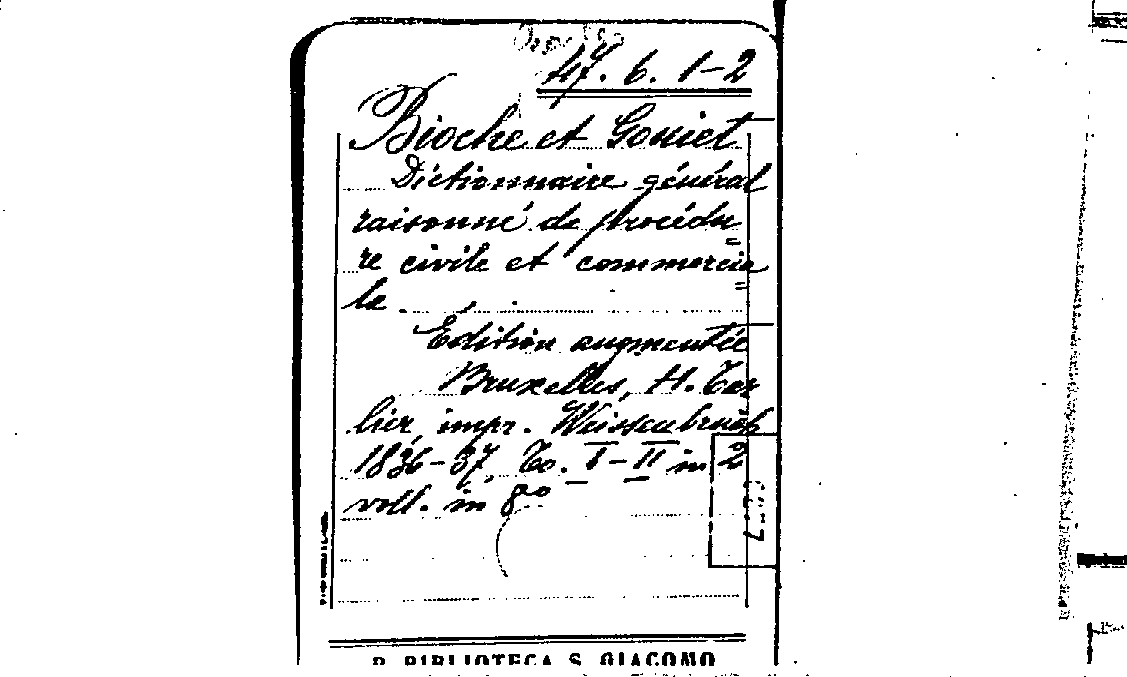 47. 6. 1-2
Bioche et Goujet
Dictionnaire général
raisonné de procédu
re civile et commercia
le.
Edition augmentée
Bruxelles, H. Tar
lier, impr. Weissenbruch
1836-37, To. I-II in 2
voll. in 8°
R. BIBLIOTECA S. GIACOMO